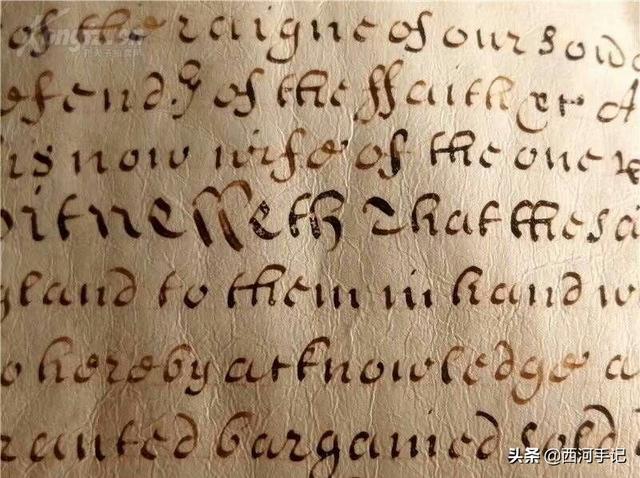 of the raigne of our Sov
efend.r of the ffaith &c A
is now wife of the one
itnesseth That the sa
gland to them in hand w
o hereby acknowledge a
ranted bargained sold
头条 @西河手记